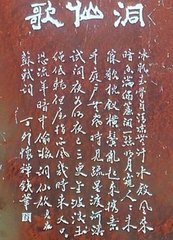 洞仙歌
冰肌玉骨自清涼無汗水殿風來
暗香滿繡簾開一點明月窺人人未
寢欹枕釵橫鬢亂起來攜素
手庭戶無聲時見疏星渡河漢
試問夜如何夜已三更金波淡玉
繩低轉但屈指西風幾時來又不
道流年暗中偷換
蘇軾詞